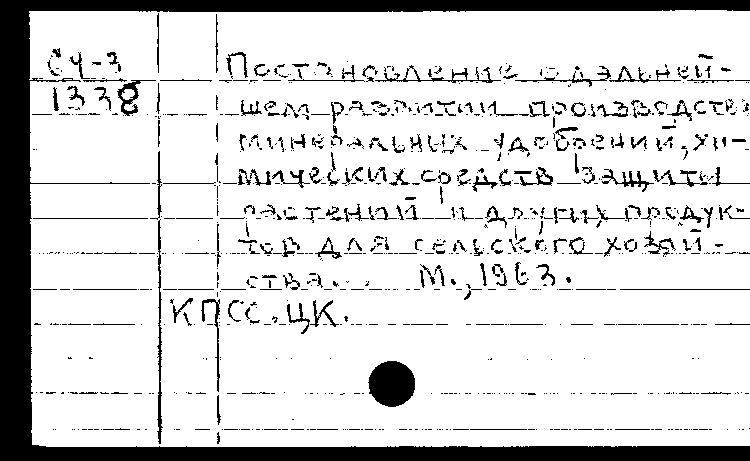 СЧ-3
1338
Постановление о дальней-
шем развитии производства
минеральных удобрений, хи-
мических средств защиты
растений и других продук-
тов для сельского хозяй-
ства... М., 1963.
КПСС. ЦК.